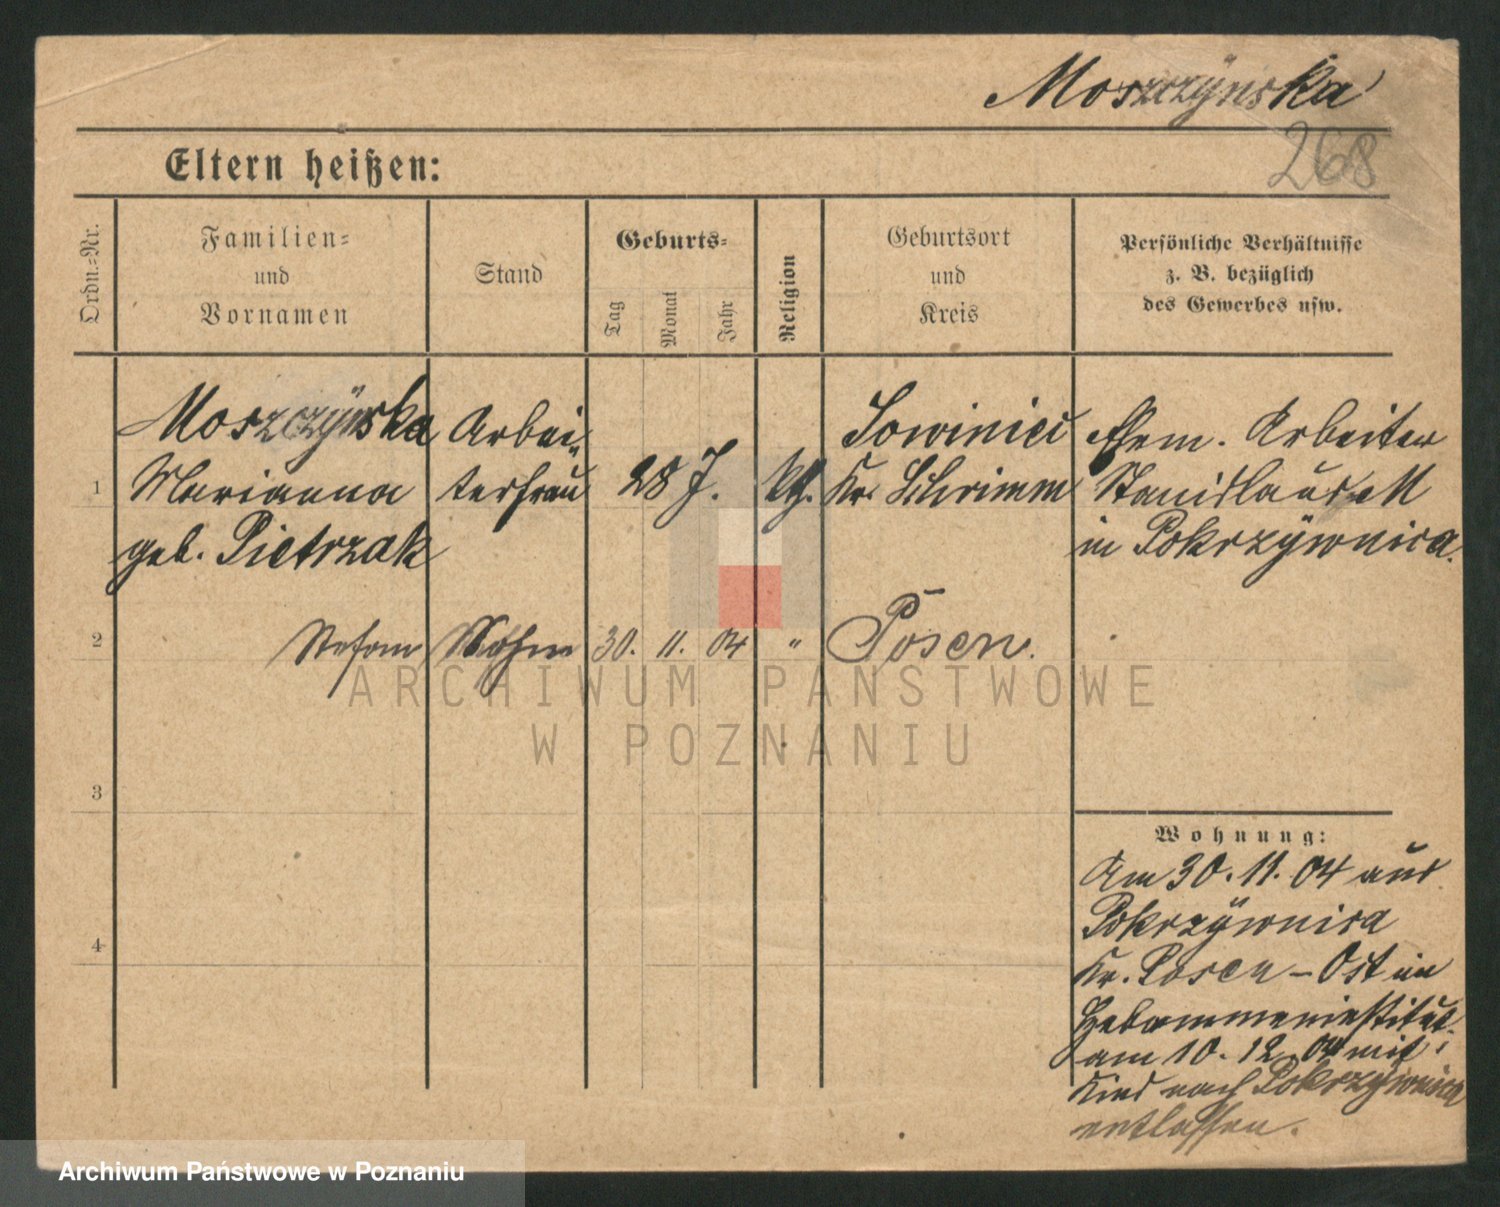 Moszczÿnska
268
Eltern heißen:
Ordn.-Nr.
Familien-
und
Vornamen
Stand
Geburts-
Tag
Monat
Jahr
Religion
Geburtsort
und
Kreis
Persönliche Verhältnisse
z. B. bezüglich
des Gewerbes usw.
1
Moszczÿnska
Marianna
geb. Pietrzak
Arbei-
terfrau
28 J.
kth.
Sowiniec
Kr. Schrimm
Ehem. Arbeiter
Stanislaus M
in Pokrzÿwnica.
2
Stefan
Sohn
30. 11. 04
"
Posen.
3
4
Wohnung:
Am 30. 11. 04 aus
Pokrzÿwnica
Kr. Posen - Ost im
Hebammeninstitut.
am 10. 12. 04 mit
Kind nach Pokrzÿwnica
entlassen.
ARCHIWUM PAŃSTWOWE
W POZNANIU
Archiwum Państwowe w Poznaniu